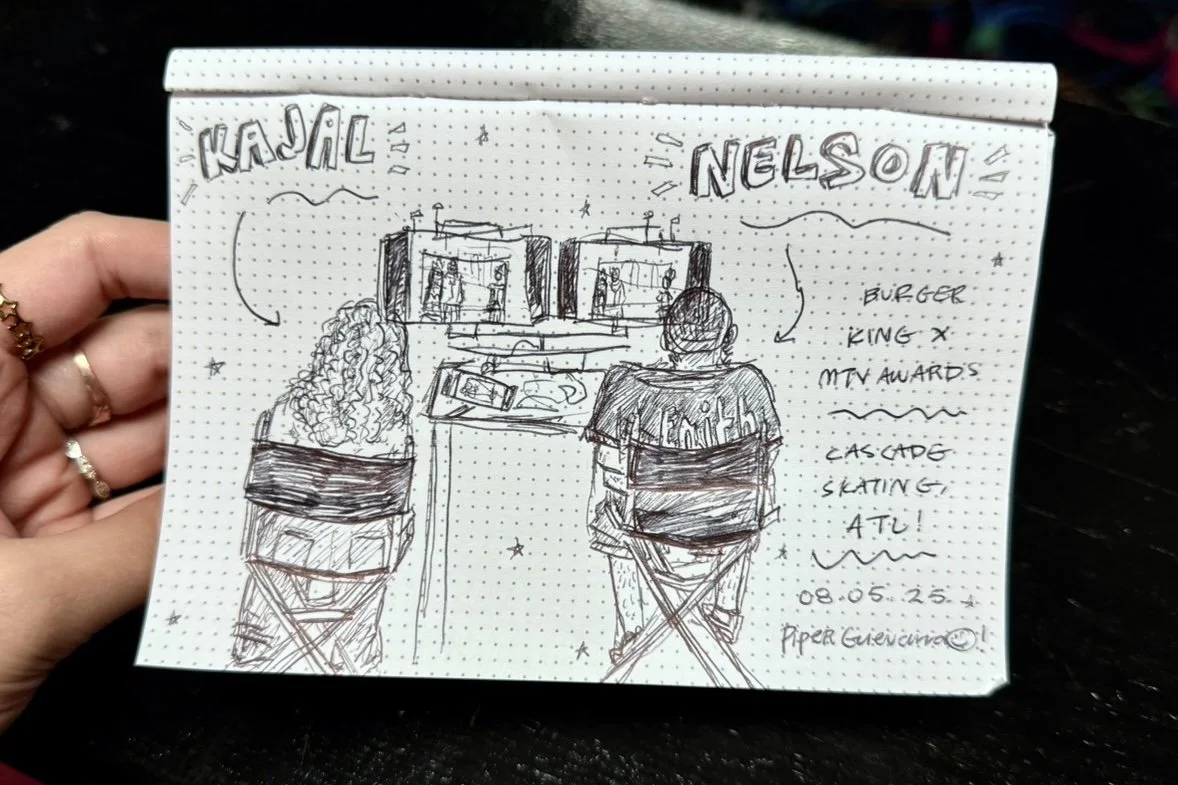 KAJAL
NELSON
BURGER
KING X
MTV AWARDS
CASCADE
SKATING,
ATL!
08.05.25.
Piper Guevarra!